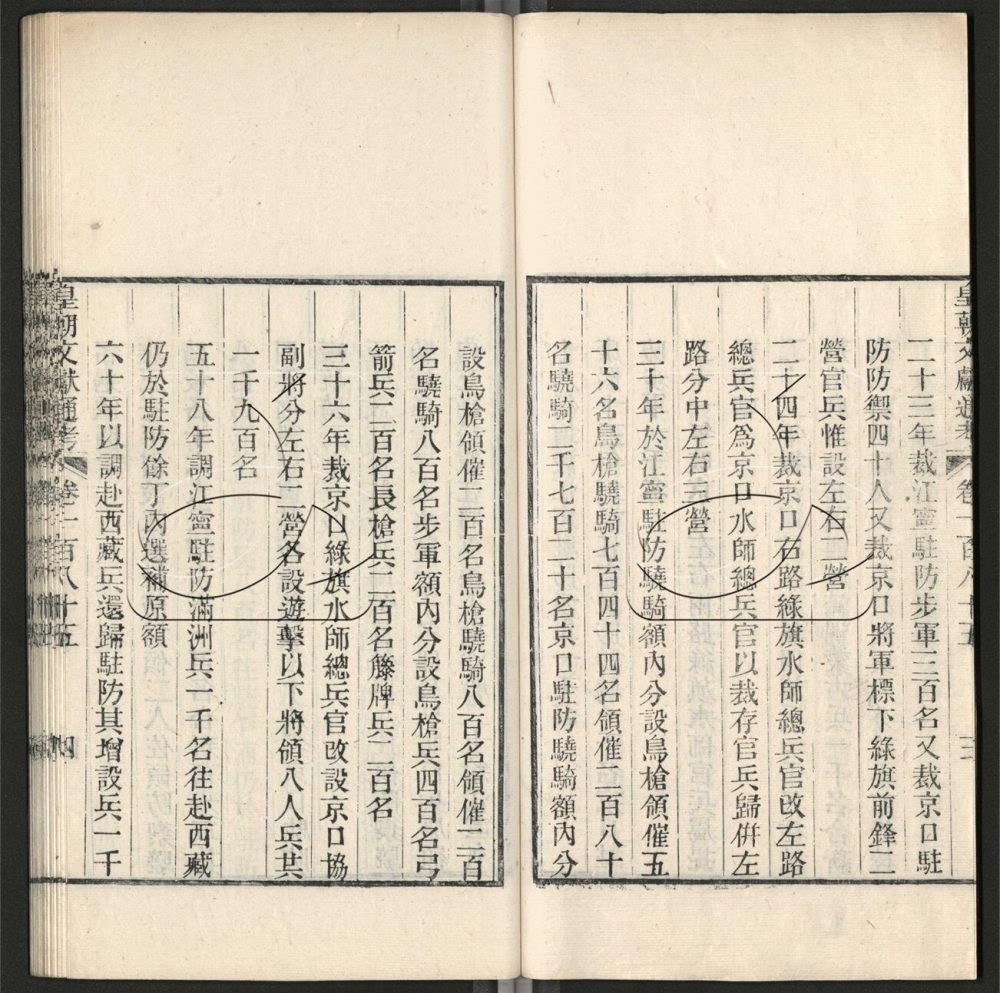 皇朝文獻通考 卷一百八十五
二十三年裁江寧駐防步軍三百名又裁京口駐
防防禦四十人又裁京口將軍標下綠旗前鋒二
營官兵惟設左右二營
二十四年裁京口右路綠旗水師總兵官改左路
總兵官爲京口水師總兵官以裁存官兵歸倂左
路分中左右三營
三十年於江寧駐防驍騎額內分設鳥槍領催五
十六名鳥槍驍騎七百四十四名領催二百八十
名驍騎二千七百二十名京口駐防驍騎額內分
設鳥槍領催二百名鳥槍驍騎八百名領催二百
名驍騎八百名步軍額內分設鳥槍兵四百名弓
箭兵二百名長槍兵二百名籐牌兵二百名
三十六年裁京口綠旗水師總兵官改設京口協
副將分左右二營各設遊擊以下將領八人兵共
一千九百名
五十八年調江寧駐防滿洲兵一千名往赴西藏
仍於駐防餘丁內選補原額
六十年以調赴西藏兵還歸駐防其增設兵一千
皇朝文獻通考 卷一百八十五 四